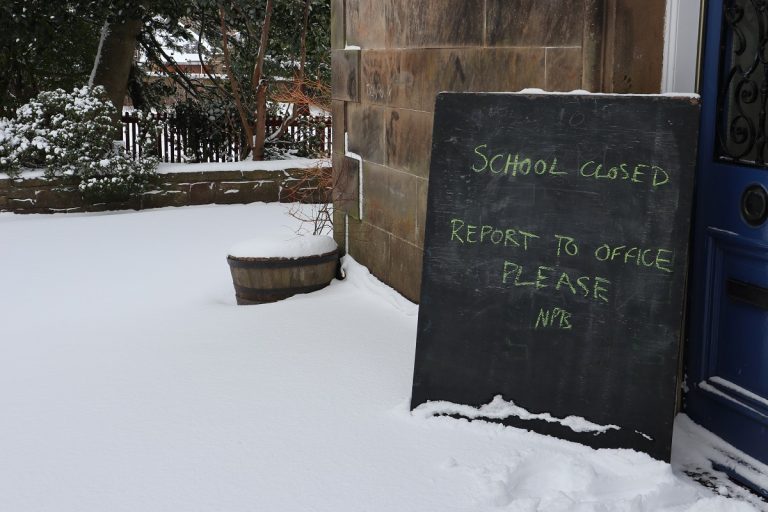 SCHOOL CLOSED
REPORT TO OFFICE
PLEASE
NPB